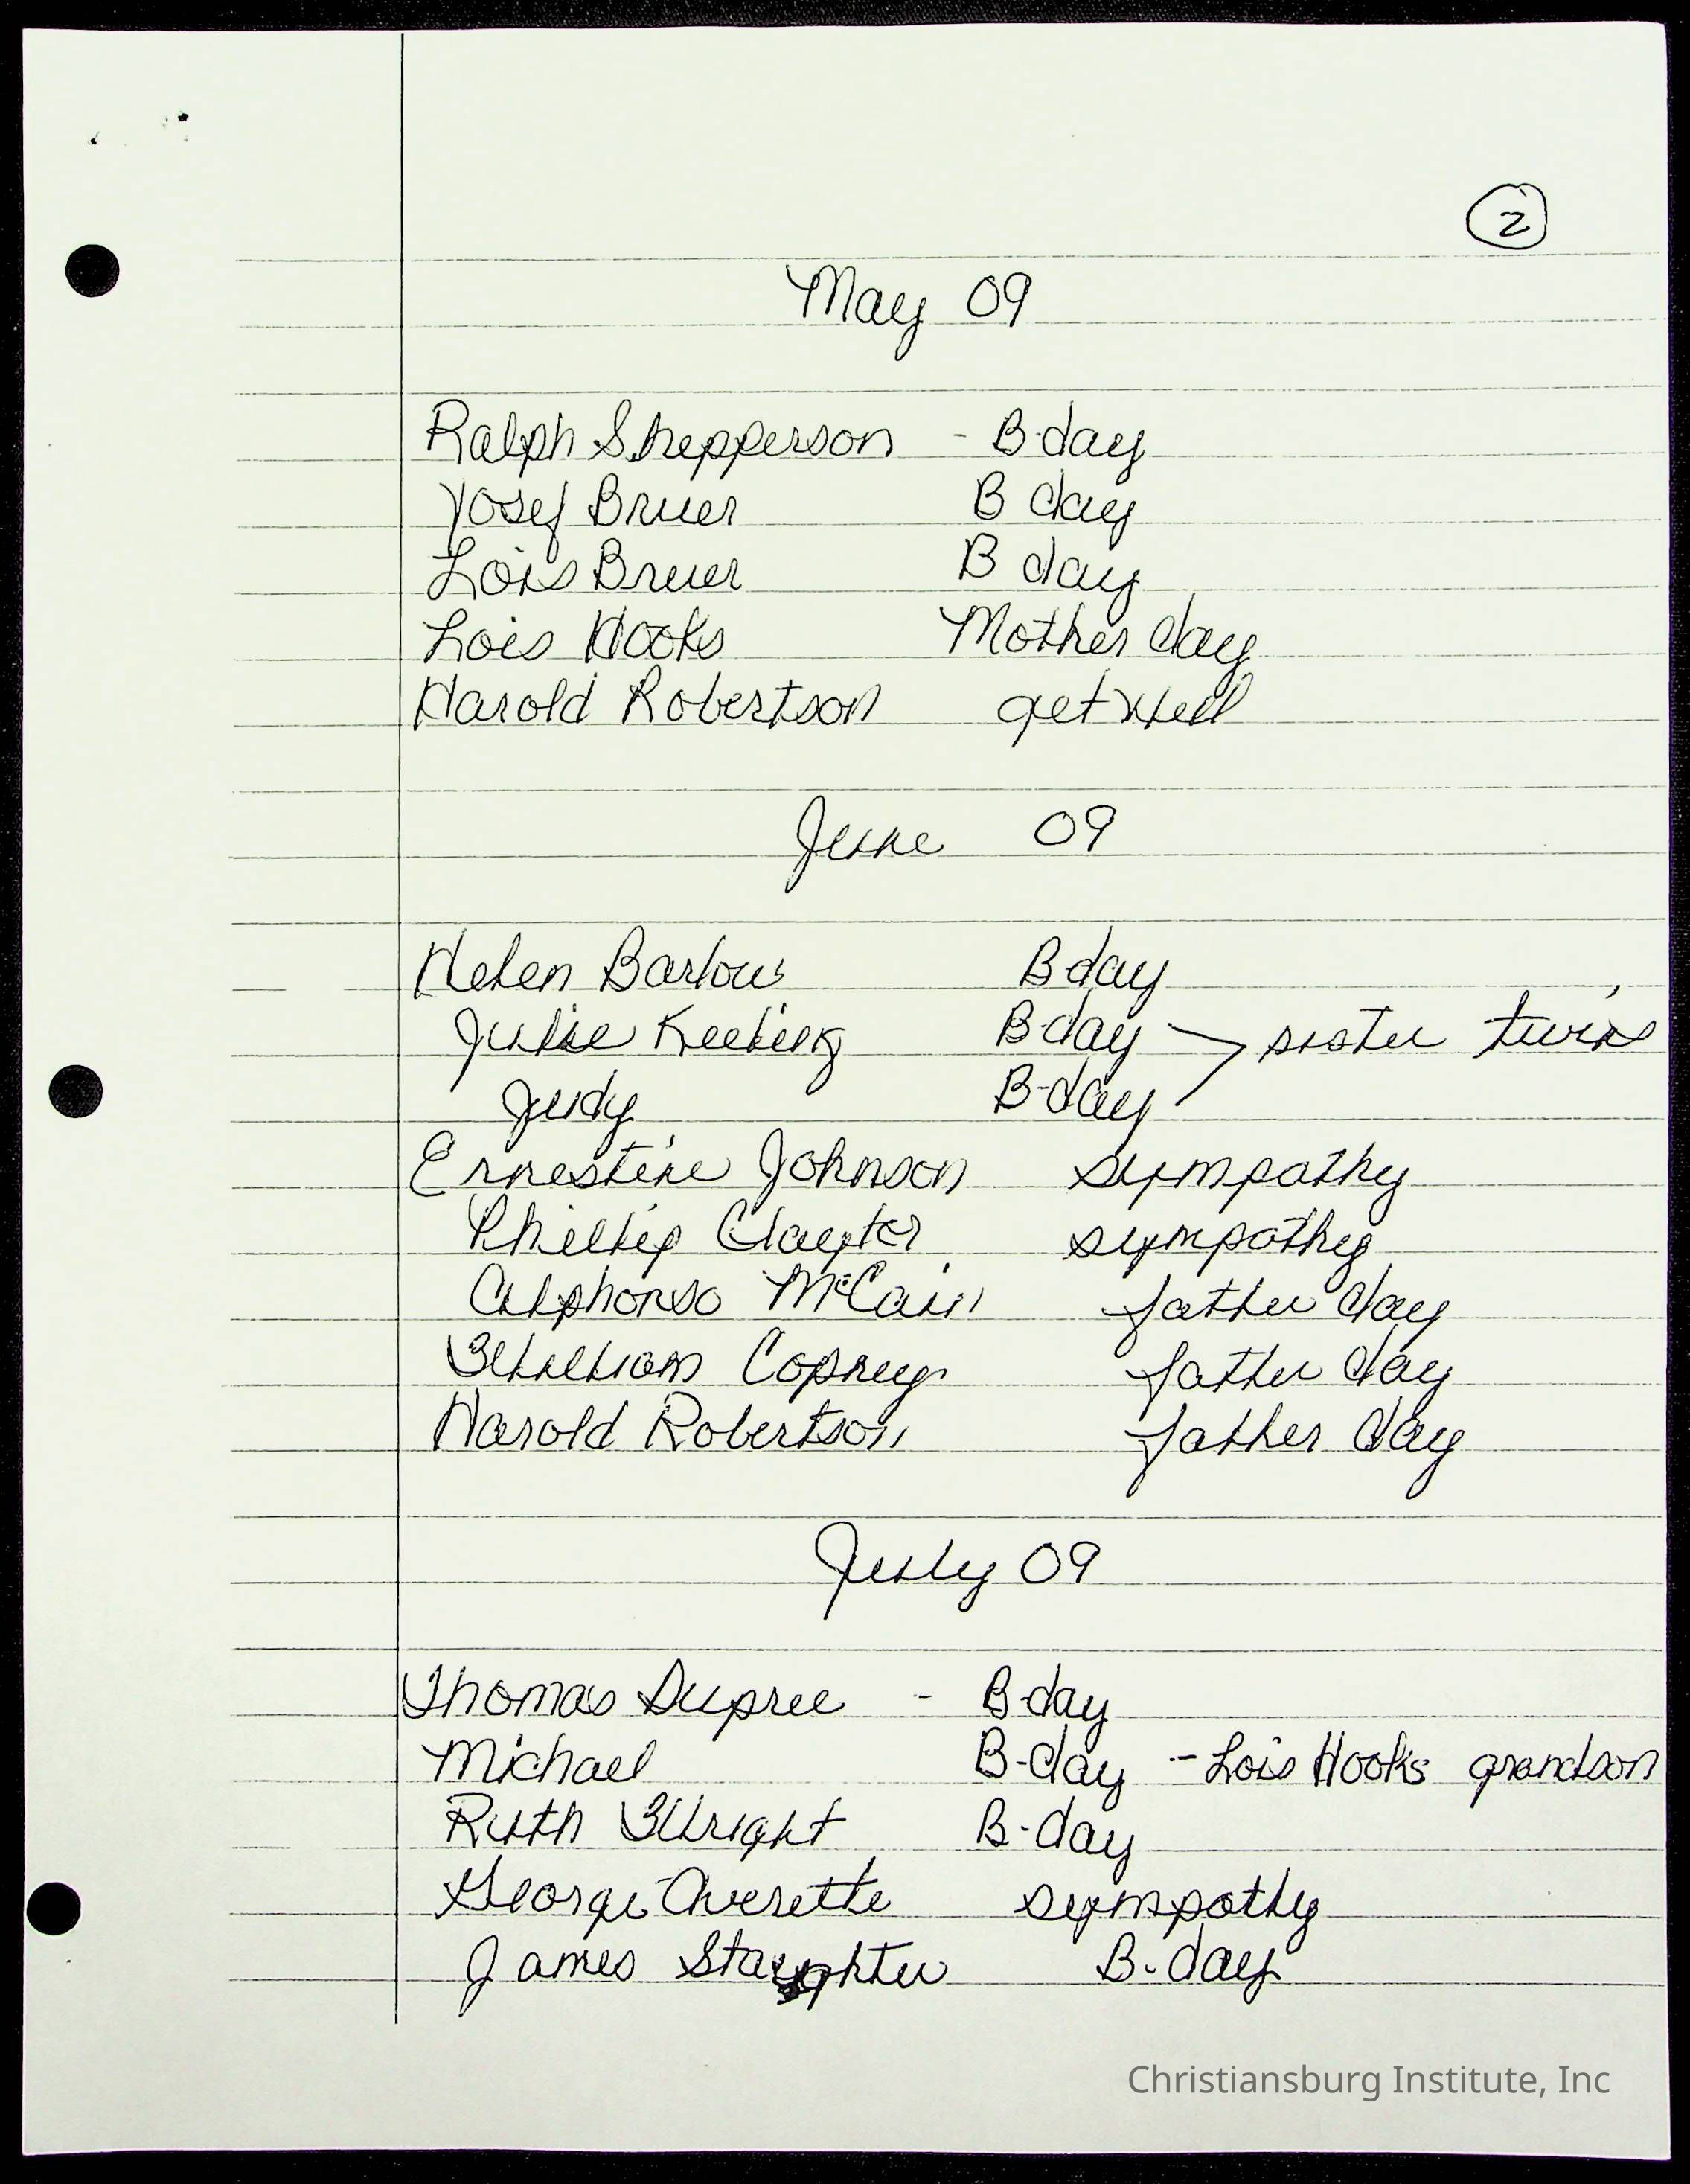 2
May 09
Ralph Shepperson - B-day
Yosef Bruer B day
Lois Bruer B day
Lois Hooks Mother day
Harold Robertson get well
June 09
Helen Barlow B-day
Julie Keeling B-day > sister twins
Judy B-day
Ernestine Johnson sympathy
Phillip Clayter sympathy
Alphonso McCain father day
William Copney father day
Harold Robertson father day
July 09
Thomas Dupree - B-day
Michael B-day - Lois Hooks grandson
Ruth Wright B-day
George Averette sympathy
James B-day
Christiansburg Institute, Inc